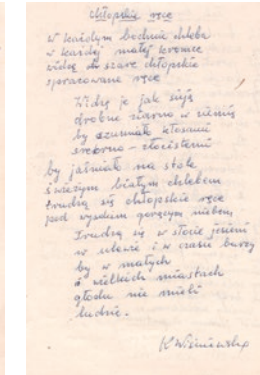 chłopskie ręce
W każdym bochnie chleba
w każdej małej kromce
widzę te szare chłopskie
spracowane ręce
Widzę je jak sieją
drobne ziarno w ziemię
by szumiało kłosami
srebrno-złocistemi
by jaśniało na stole
świeżym białym chlebem
trudzą się chłopskie ręce
pod wysokim gorącym niebem,
Trudzą się w słocie jesieni
w ulewie i w czasie burzy
by w małych
i wielkich miastach
głodu nie mieli
ludzie.
K Wiśniewska